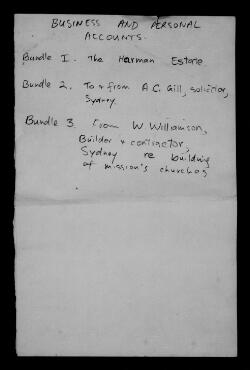 BUSINESS AND PERSONAL
ACCOUNTS.
Bundle 1. The Harman Estate
Bundle 2. To & from A.C. Gill, solicitor,
Sydney.
Bundle 3. From W Williamson,
Builder & contractor,
Sydney re building
of mission's churches